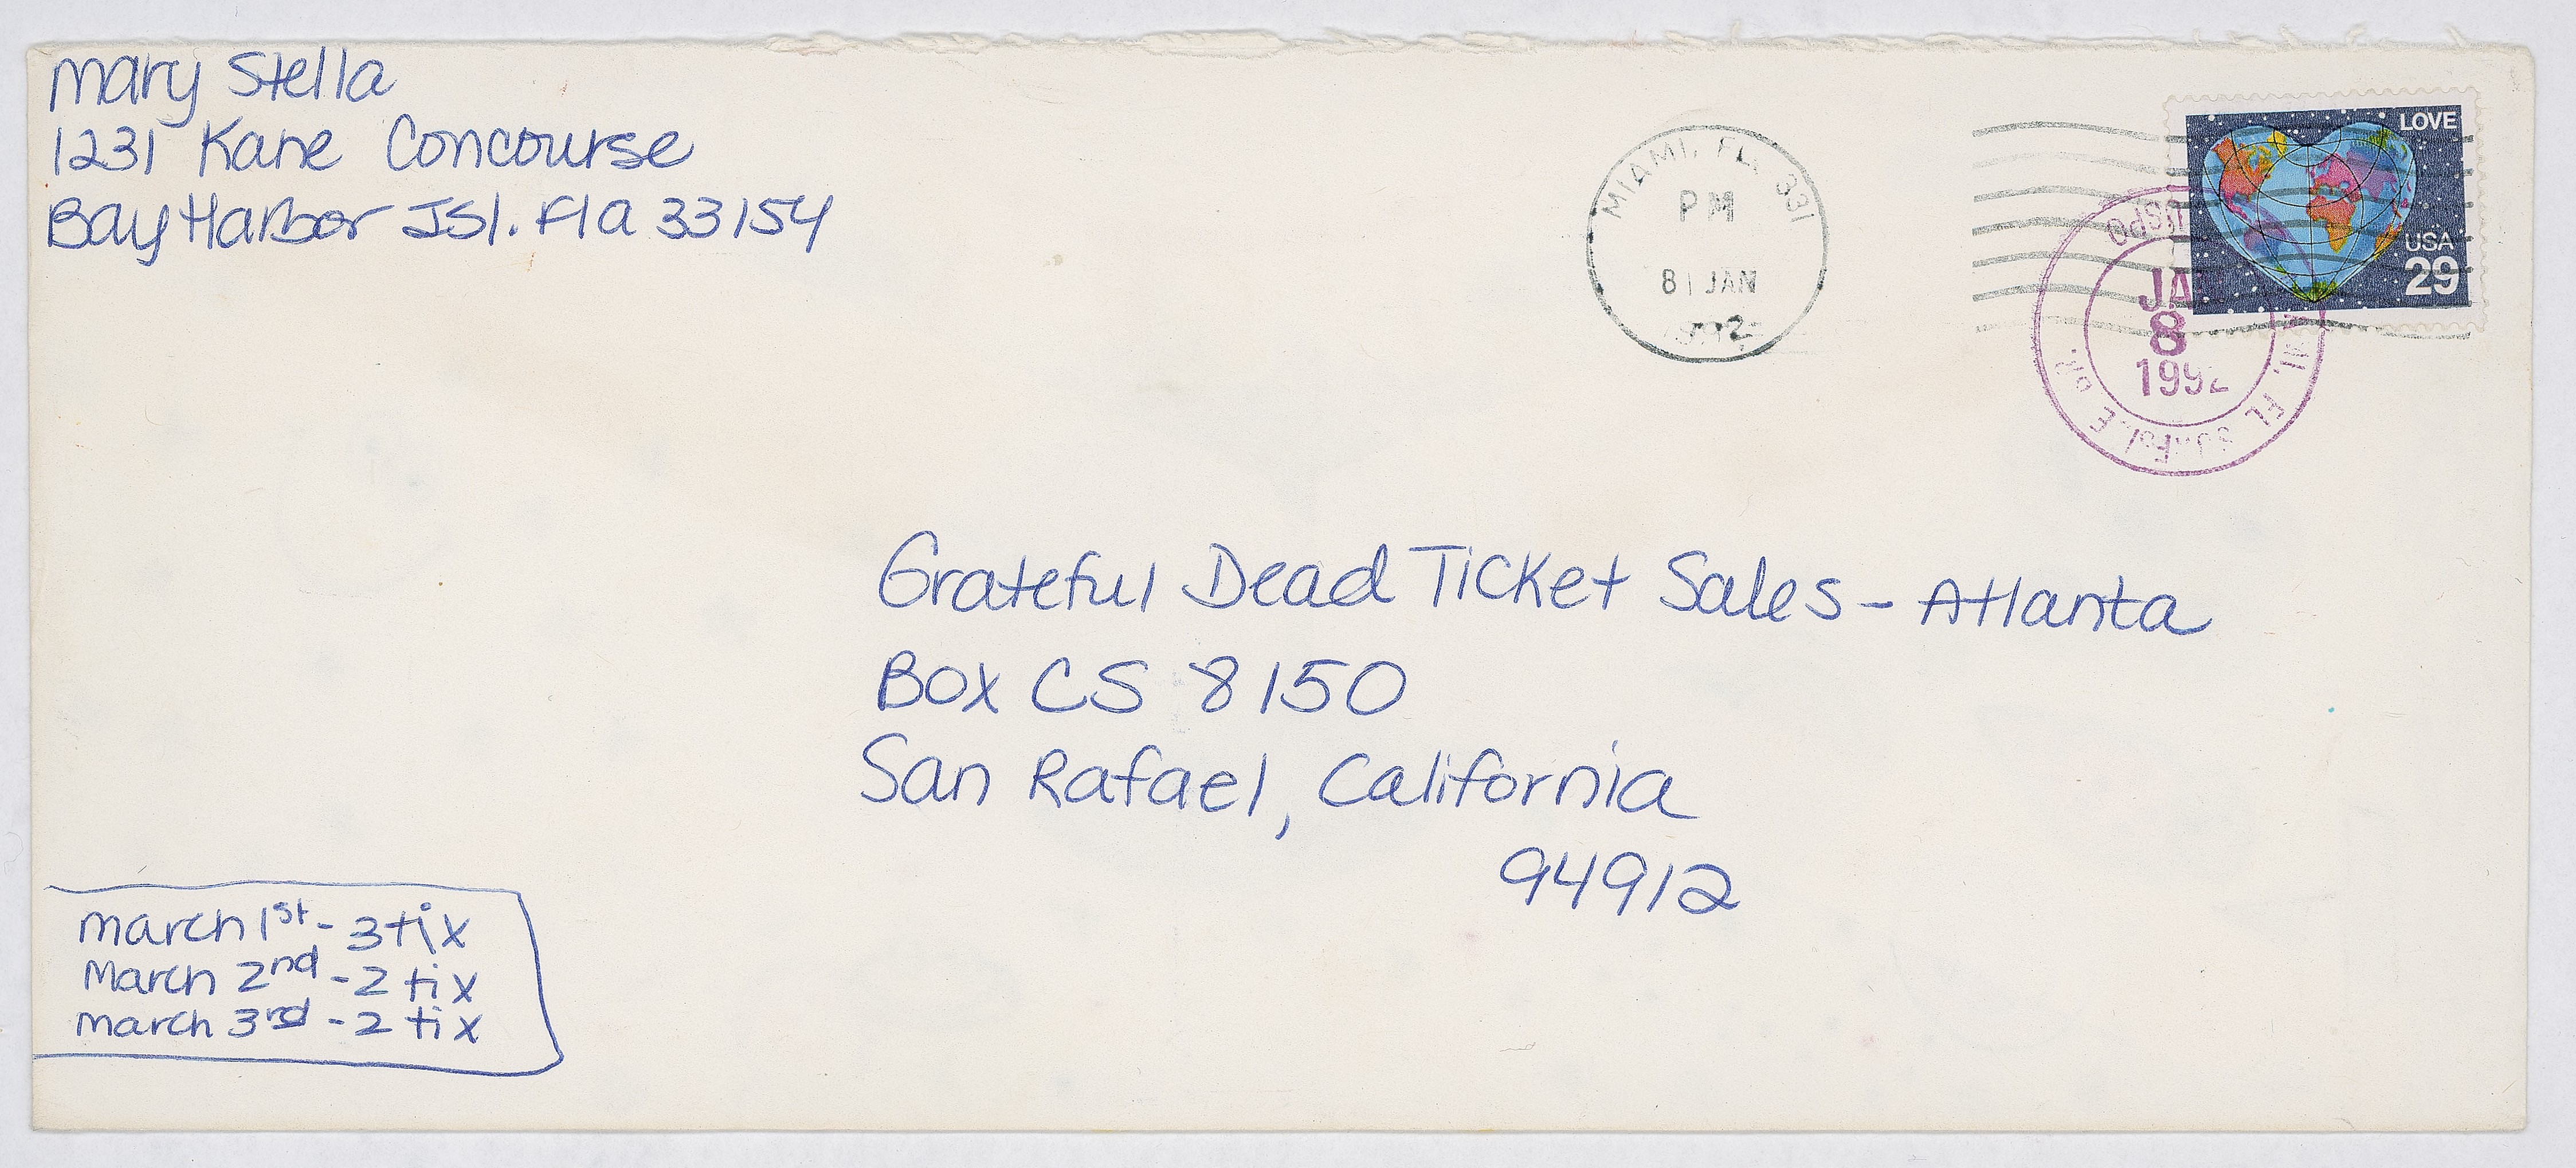 Mary Stella
1231 Kane Concourse
Bay Harbor Isl. Fla 33154
MIAMI, FL 331
PM
8 JAN
1992
LOVE
USA
29
USPO
JA
8
1992
Grateful Dead Ticket Sales - Atlanta
Box CS 8150
San Rafael, California
94912
March 1st - 3 tix
March 2nd - 2 tix
March 3rd - 2 tix